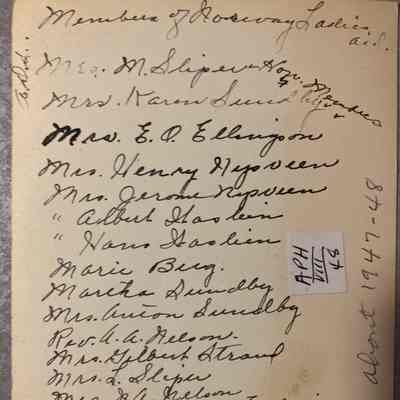 Members of Norway Ladies
aid.
Mrs. M. Sliper Hon. Members
Mrs. Karen Sundby
Mrs. E. O. Ellingson
Mrs. Henry Nysveen
Mrs. Jerome Nysveen
" Albert Haslien
" Hans Haslien
Marie Berg.
Martha Sundby
Mrs. Anton Sundby
Rev. A. A. Nelson.
Mrs. Gilbert Strand
Mrs. L. Sliper
Mrs. A. Nelson
APH
VIII
48
about 1947-48